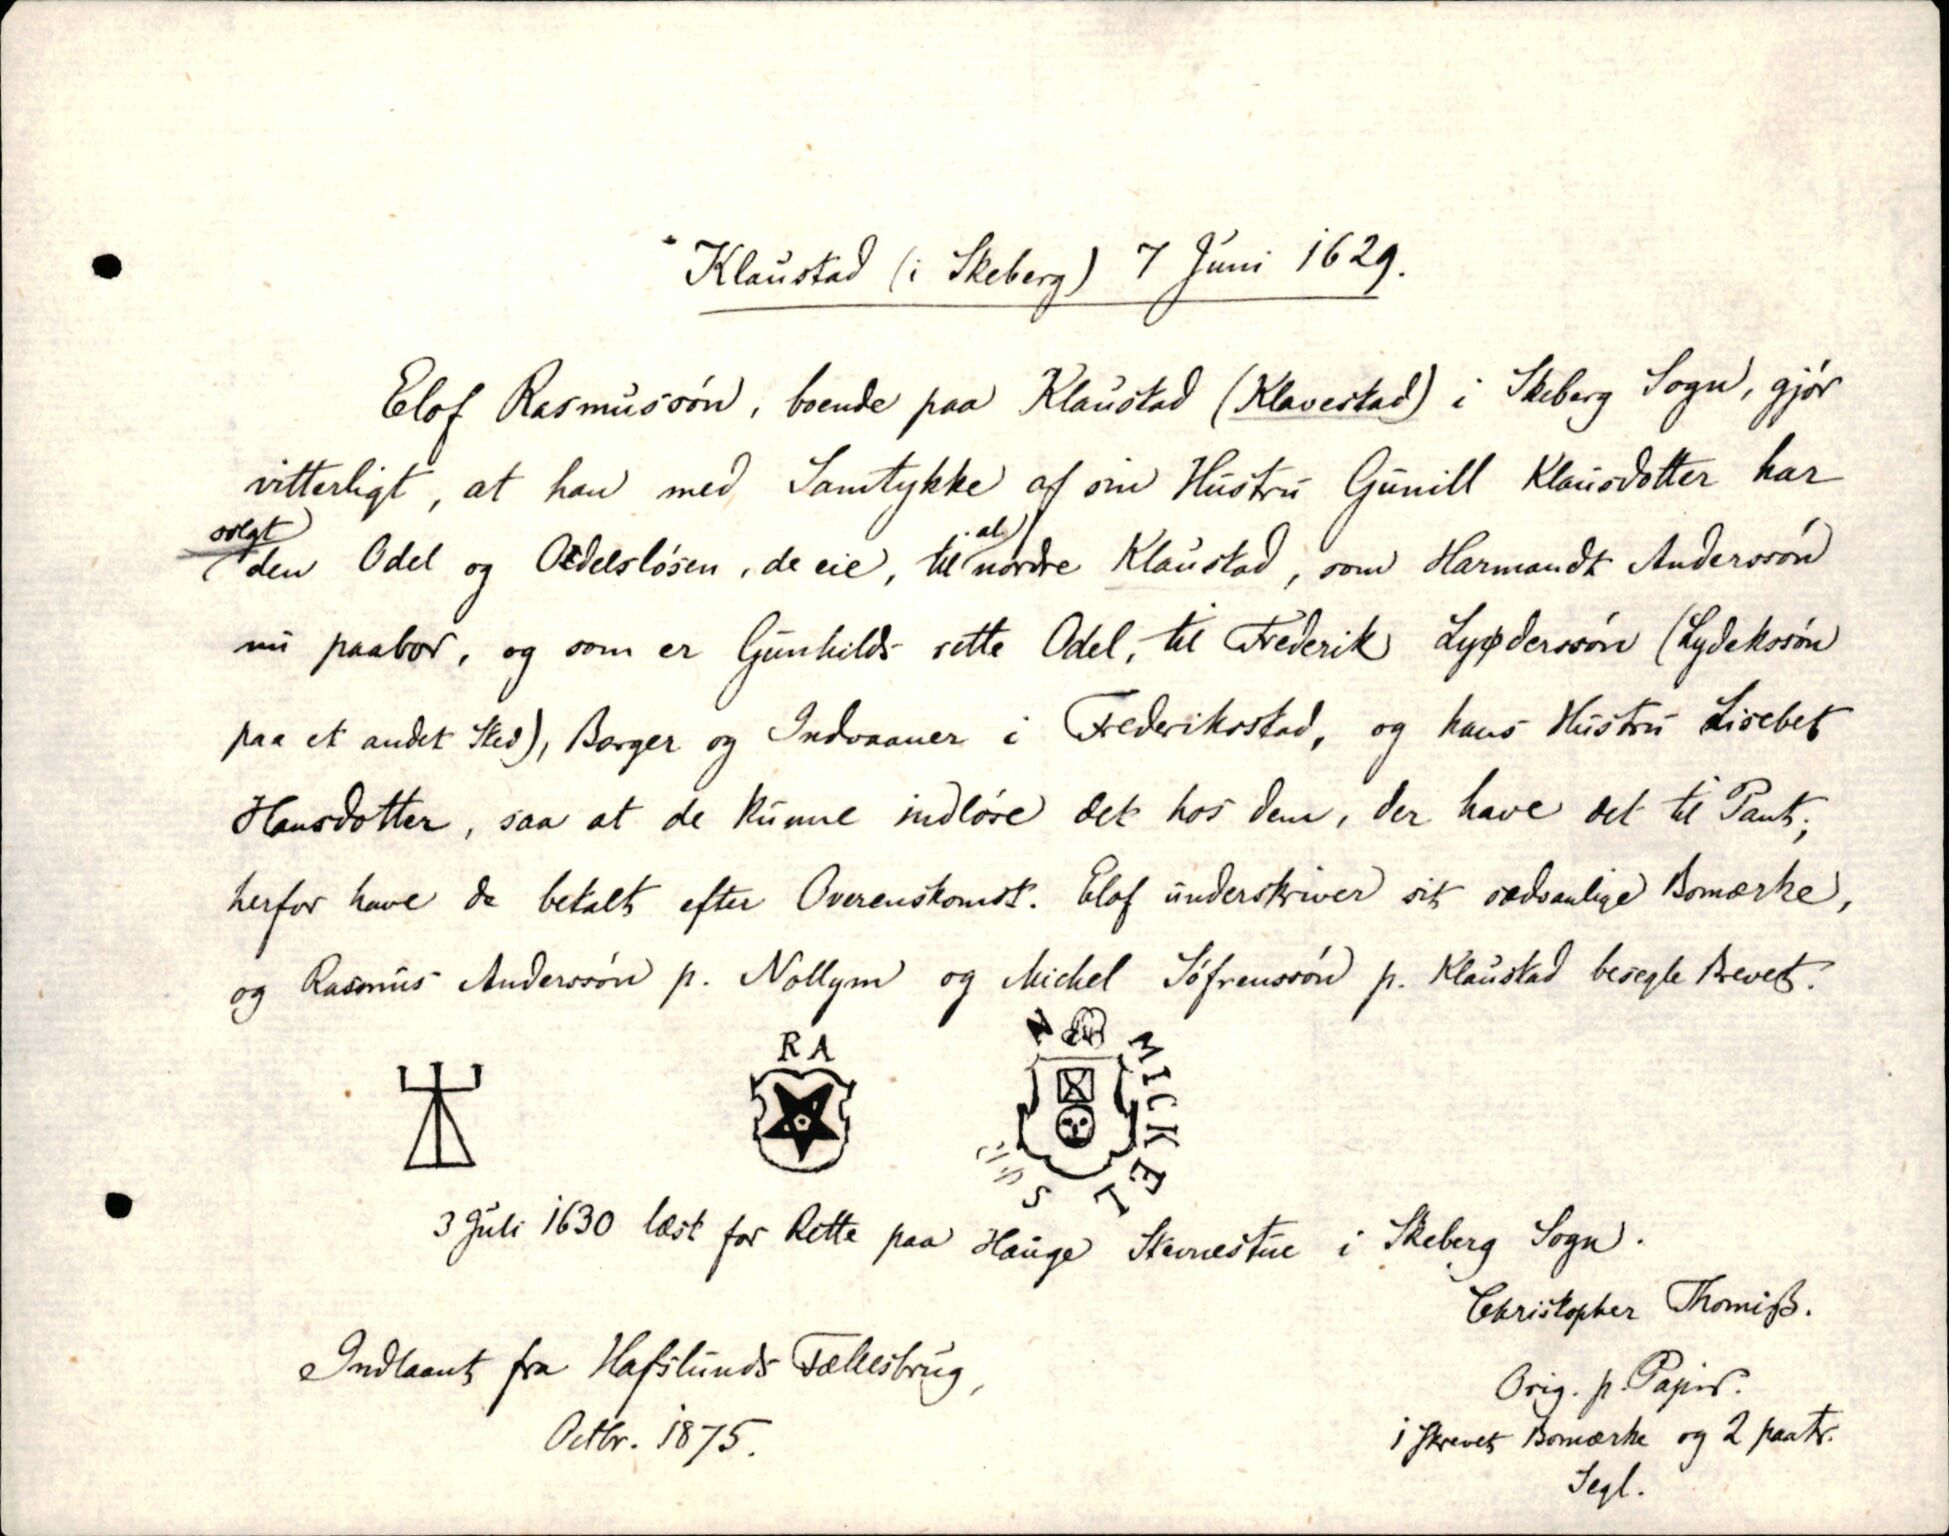 Klaustad (i Skeberg) 7 Juni 1629.
Elof Rasmussøn, boende paa Klaustad (Klavestad) i Skeberg Sogn, gjør
vitterligt, at han med Samtykke af sin Hustru Gunill Klausdotter har
solgt
den Odel og Odelsløsen, de eie, til nordre Klaustad, som Harmandt Anderssøn
nu paabor, og som er Gunhilds rette Odel, til Frederik Lyderssøn (Lydekssøn
paa et andet Sted), Borger og Indvaaner i Frederiksstad, og hans Hustru Lisebet
Hansdotter, saa at de kunne indløse det hos dem, der have det til Pant;
herfor have de betalt efter Overenskomst. Elof underskriver sit sædvanlige Bomærke,
og Rasmus Anderssøn p. Nollym og Michel Søfrenssøn p. Klaustad besegle Brevet.
R A
MICKEL
S
3 Juli 1630 læst for Rette paa Hauge Stevnestue i Skeberg Sogn.
Christopher Thomiß.
Indlaant fra Hafslunds Fællesbrug,
Octbr. 1875.
Orig. p. Papir.
1 skrevet Bomærke og 2 paatr.
Segl.